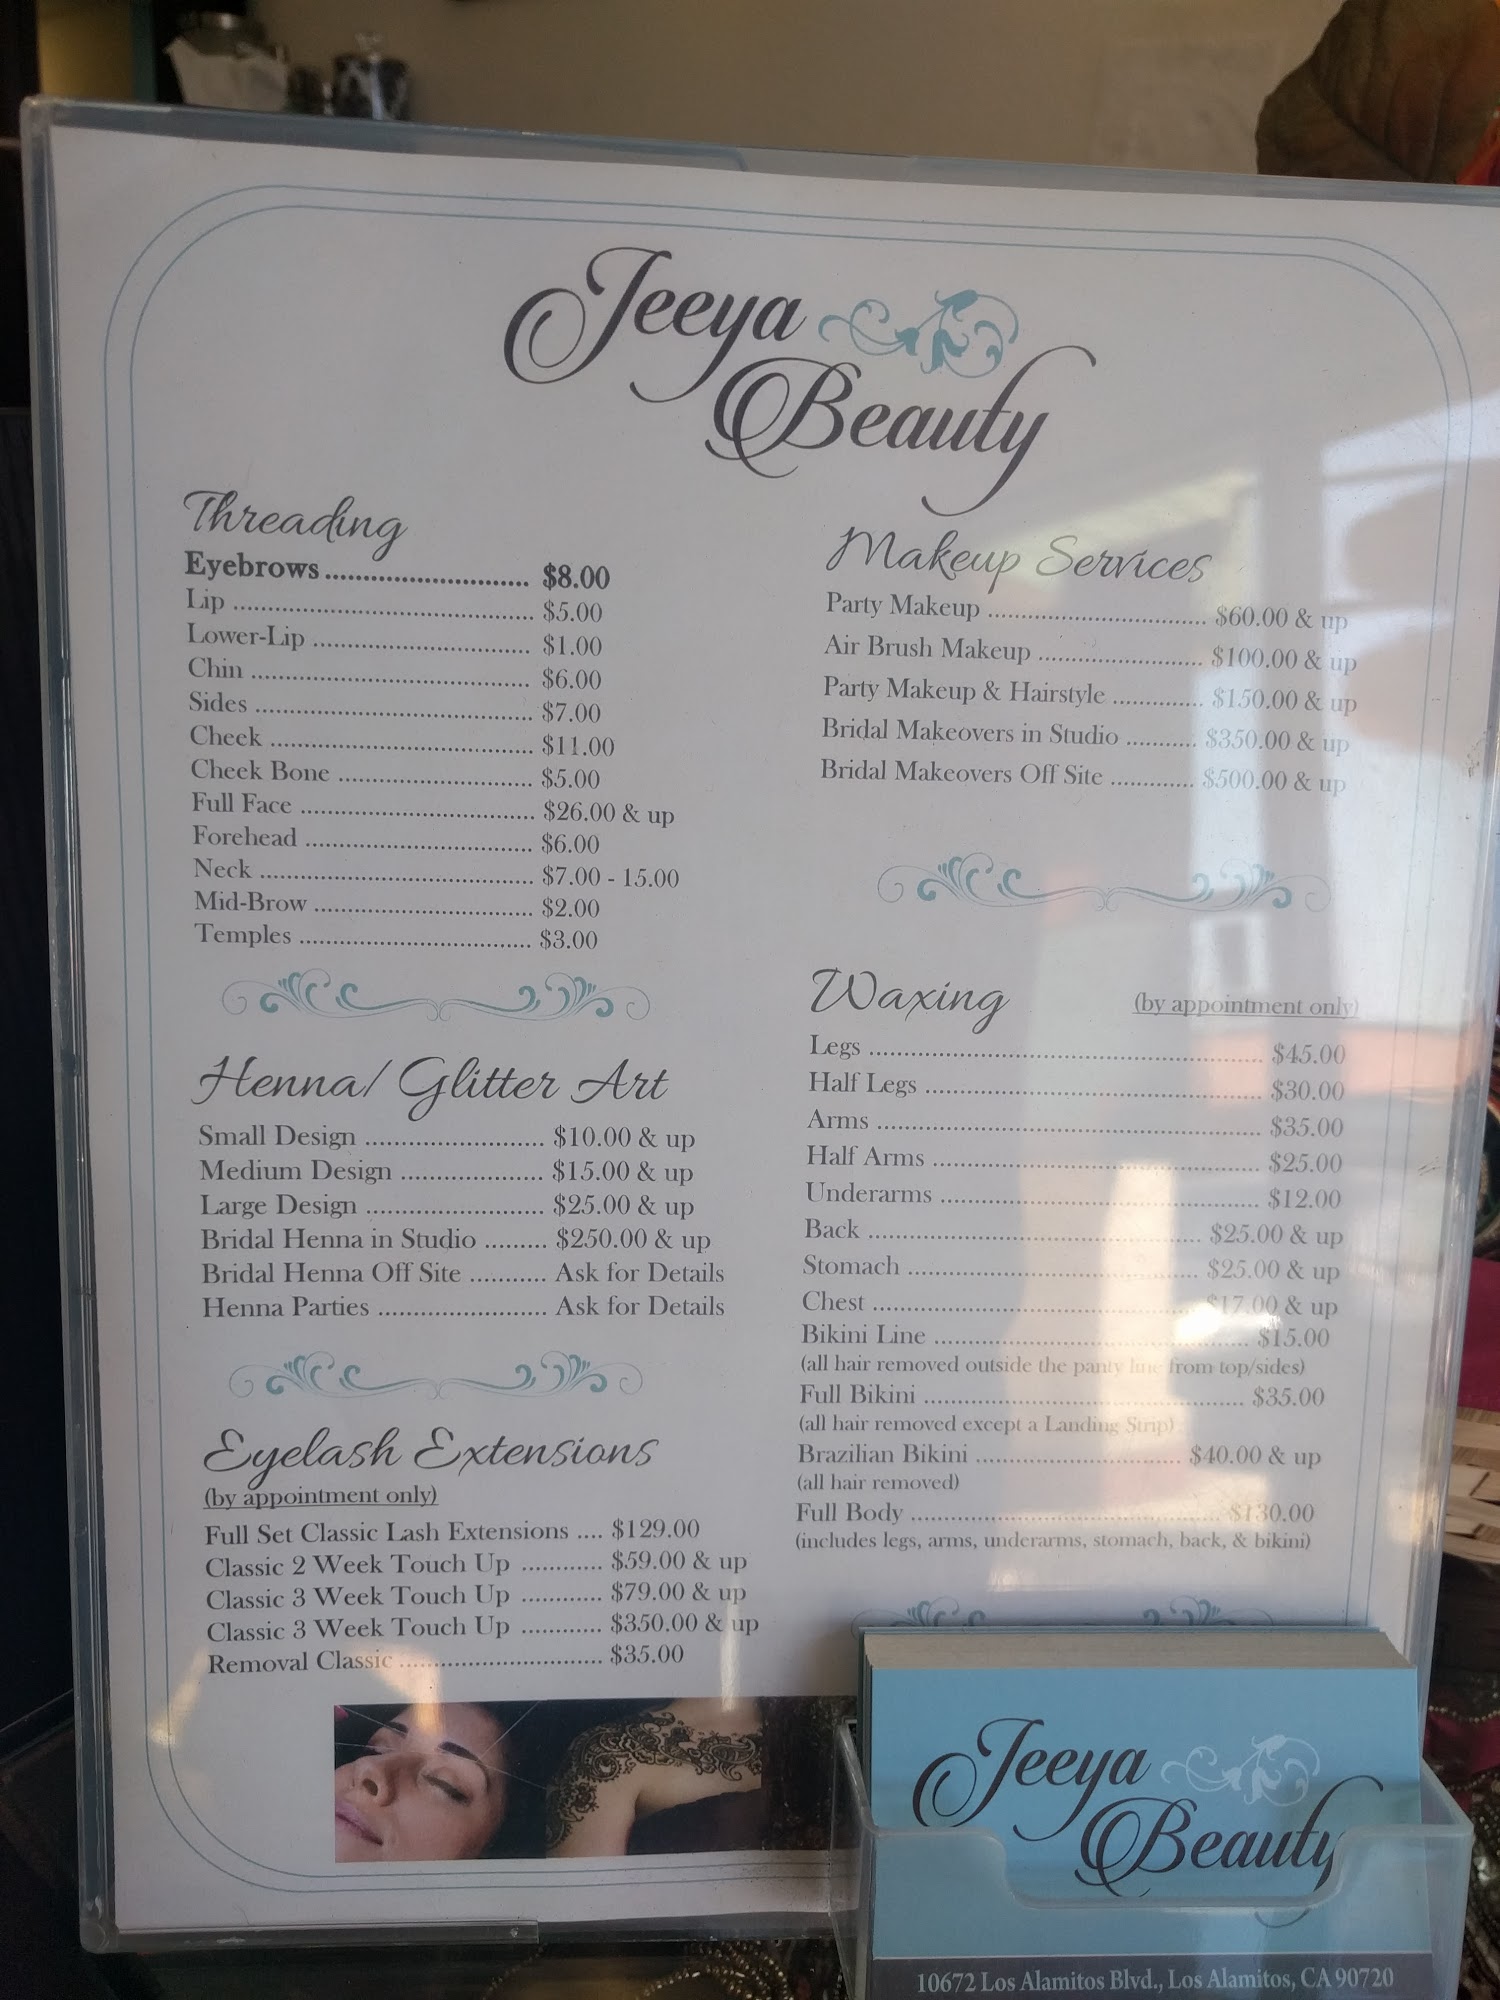 Jeeya
Beauty
Threading
Eyebrows ........................... $8.00
Lip ....................................... $5.00
Lower-Lip ............................ $1.00
Chin .................................... $6.00
Sides .................................... $7.00
Cheek .................................. $11.00
Cheek Bone ......................... $5.00
Full Face .............................. $26.00 & up
Forehead ............................. $6.00
Neck .................................... $7.00 - 15.00
Mid-Brow ............................ $2.00
Temples .............................. $3.00
Henna/ Glitter Art
Small Design .......................... $10.00 & up
Medium Design ..................... $15.00 & up
Large Design .......................... $25.00 & up
Bridal Henna in Studio ......... $250.00 & up
Bridal Henna Off Site ........... Ask for Details
Henna Parties ........................ Ask for Details
Eyelash Extensions
(by appointment only)
Full Set Classic Lash Extensions .... $129.00
Classic 2 Week Touch Up ............ $59.00 & up
Classic 3 Week Touch Up ............ $79.00 & up
Classic 3 Week Touch Up ............ $350.00 & up
Removal Classic .............................. $35.00
Makeup Services
Party Makeup ................................ $60.00 & up
Air Brush Makeup ........................ $100.00 & up
Party Makeup & Hairstyle ............. $150.00 & up
Bridal Makeovers in Studio .......... $350.00 & up
Bridal Makeovers Off Site ............ $500.00 & up
Waxing (by appointment only)
Legs ......................................................... $45.00
Half Legs ................................................. $30.00
Arms ........................................................ $35.00
Half Arms ................................................ $25.00
Underarms .............................................. $12.00
Back ................................................ $25.00 & up
Stomach .......................................... $25.00 & up
Chest ............................................... $17.00 & up
Bikini Line .............................................. $15.00
(all hair removed outside the panty line from top/sides)
Full Bikini ............................................... $35.00
(all hair removed except a Landing Strip)
Brazilian Bikini .............................. $40.00 & up
(all hair removed)
Full Body ............................................. $130.00
(includes legs, arms, underarms, stomach, back, & bikini)
Jeeya
Beauty
10672 Los Alamitos Blvd., Los Alamitos, CA 90720